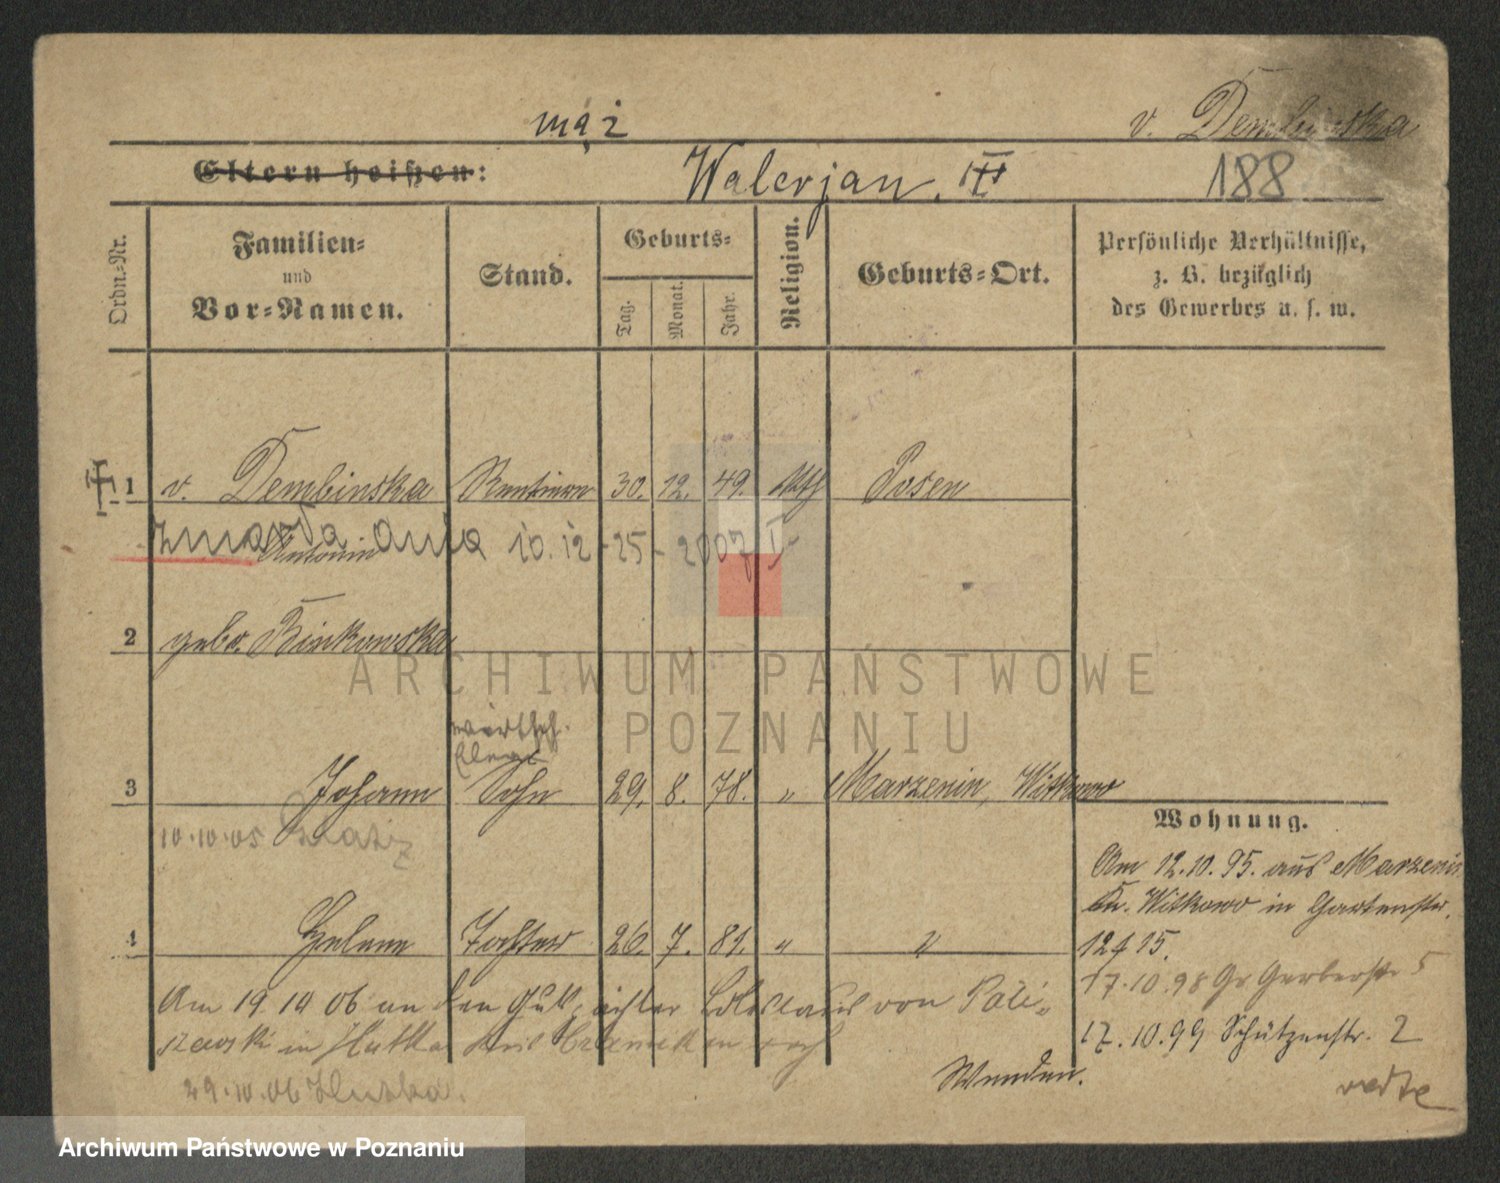 mąż v. Dembinska
Eltern heißen: Walerjan. III 188
Ordn.-Nr. Familien- und Vor-Namen. Stand. Geburts- Tag. Monat. Jahr. Religion. Geburts-Ort. Persönliche Verhältnisse, z. B. bezüglich des Gewerbes u. s. w.
1 v. Dembinska Rentiere 30. 12. 49. kth Posen
Antonin
zmarła dnia 10.12-25-2007 I-
2 geb. Binkowska
wirthsch. Eleve
3 Johann Sohn 29. 8. 78. " Marzenin, Witkowo
10.10.05
4 Helene Tochter 26. 7. 81. " "
Am 19 10 06 an den Boleslaus von
in Hutka
29.10.06
Wohnung.
Am 12.10.95. aus Marzenin
Kr. Witkowo in Gartenstr.
12 f 15.
17.10.98 Gr Gerberstr 5
17.10.99 Schützenstr. 2
Wenden.
verte
ARCHIWUM PAŃSTWOWE
POZNANIU
Archiwum Państwowe w Poznaniu